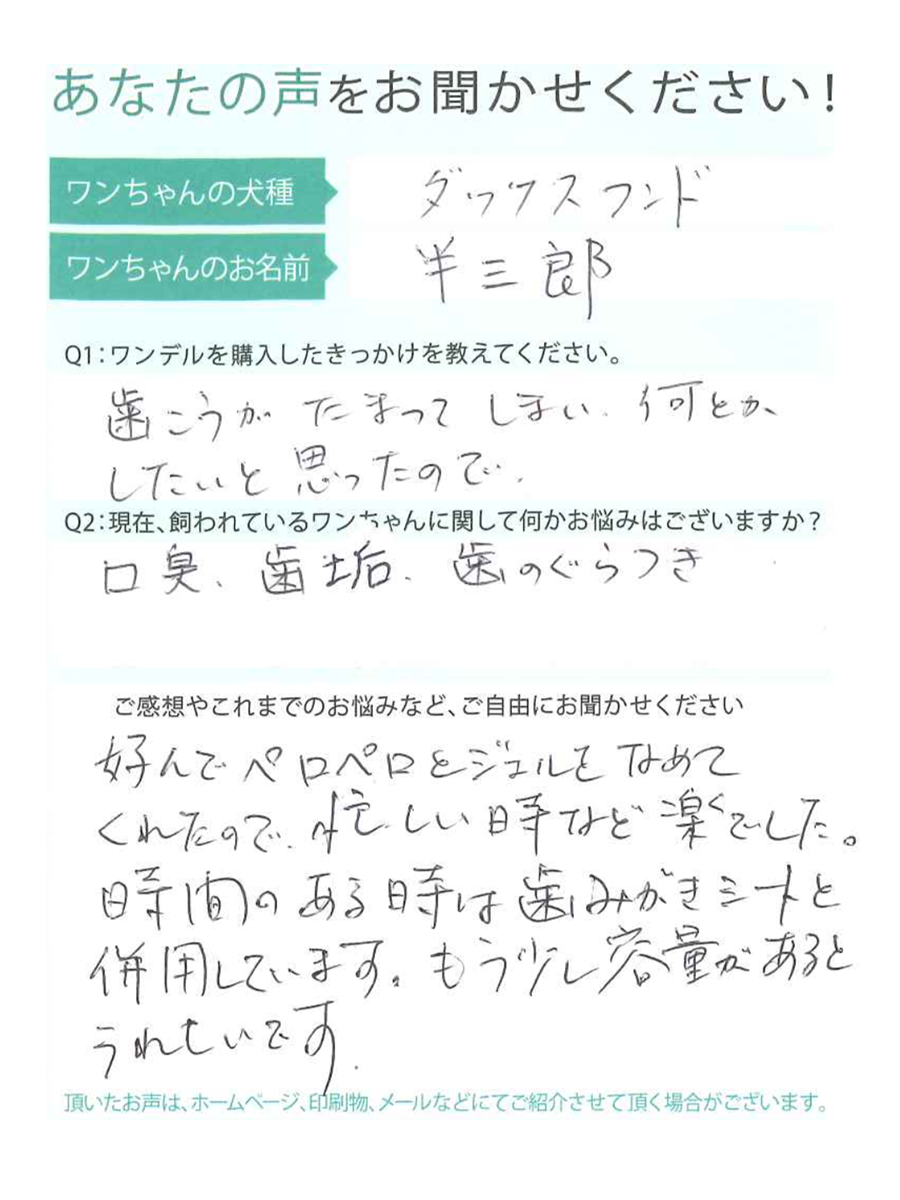 あなたの声をお聞かせください!
ワンちゃんの犬種
ダックスフンド
ワンちゃんのお名前
半三郎
Q1:ワンデルを購入したきっかけを教えてください。
歯こうが たまって しまい、何とか、
したいと思ったので、
Q2:現在、飼われているワンちゃんに関して何かお悩みはございますか?
口臭、歯垢、歯のぐらつき
ご感想やこれまでのお悩みなど、ご自由にお聞かせください
好んでペロペロとジェルを なめて
くれたので、忙しい時など楽でした。
時間の ある時は歯みがきシートと
併用しています。もう少し容量があると
うれしいです.
頂いたお声は、ホームページ、印刷物、メールなどにてご紹介させて頂く場合がございます。